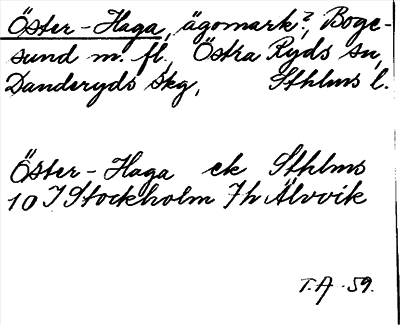 Öster-Haga, ägomark?, Boge-
sund m. fl. Östra Ryds sn,
Danderyds skg, Sthlms l.
Öster-Haga ek Sthlms
10 I Stockholm 7h Älvvik
T.A. 59.